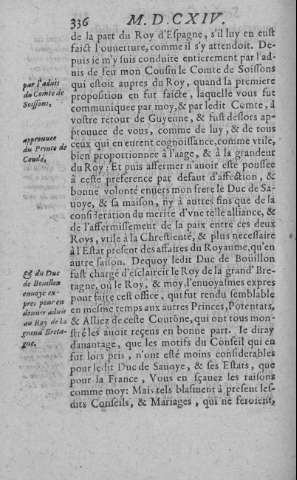 336 M. D. CXIV.
de la part du Roy d'Espagne, s'il luy en eust
faict l'ouuerture, comme il s'y attendoit. De-
puis ie m'y suis conduite entierement par l'ad-
uis de feu mon Cousin le Comte de Soissons
qui estoit aupres du Roy, quand la premiere
proposition en fut faicte, laquelle vous fut
communiquee par moy, & par ledit Comte, à
vostre retour de Guyenne, & fust deslors ap-
prouuee de vous, comme de luy, & de tous
ceux qui en eurent cognoissance, comme vtile,
bien proportionnee à l'aage, & à la grandeur
du Roy: Et puis affermer n'auoir esté poussee
à ceste preference par defaut d'affection, &
bonne volonté enuers mon frere le Duc de Sa-
uoye, & sa maison, ny à autres fins que de la
consideration du merite d'vne telle alliance, &
de l'affermissement de la paix entre ces deux
Roys, vtile à la Chrestienté, & plus necessaire
à l'Estat present des affaires du Royaume, qu'en
autre saison. Dequoy ledit Duc de Bouillon
fust chargé d'esclaircir le Roy de la grand' Bre-
tagne, où le Roy, & moy l'enuoyasmes expres
pour faire cest office, qui fut rendu semblable
en mesme temps aux autres Princes, Potentats,
& Alliez de ceste Couróne, qui ont tous mon-
stré les auoir receus en bonne part. Ie diray
dauantage, que les motifs du Conseil qui en
fut lors pris, n'ont esté moins considerables
pour ledit Duc de Sauoye, & ses Estats, que
pour la France, Vous en sçauez les raisons
comme moy: Mais tels blasment à present les-
dits Conseils, & Mariages, qui ne feroient,
par l'aduis
du Comte de
Soissons,
approuuee
du Prince de
Condé,
& du Duc
de Bouillon
enuoyé ex-
pres pour en
donner aduis
au Roy de la
grand Breta-
gne.